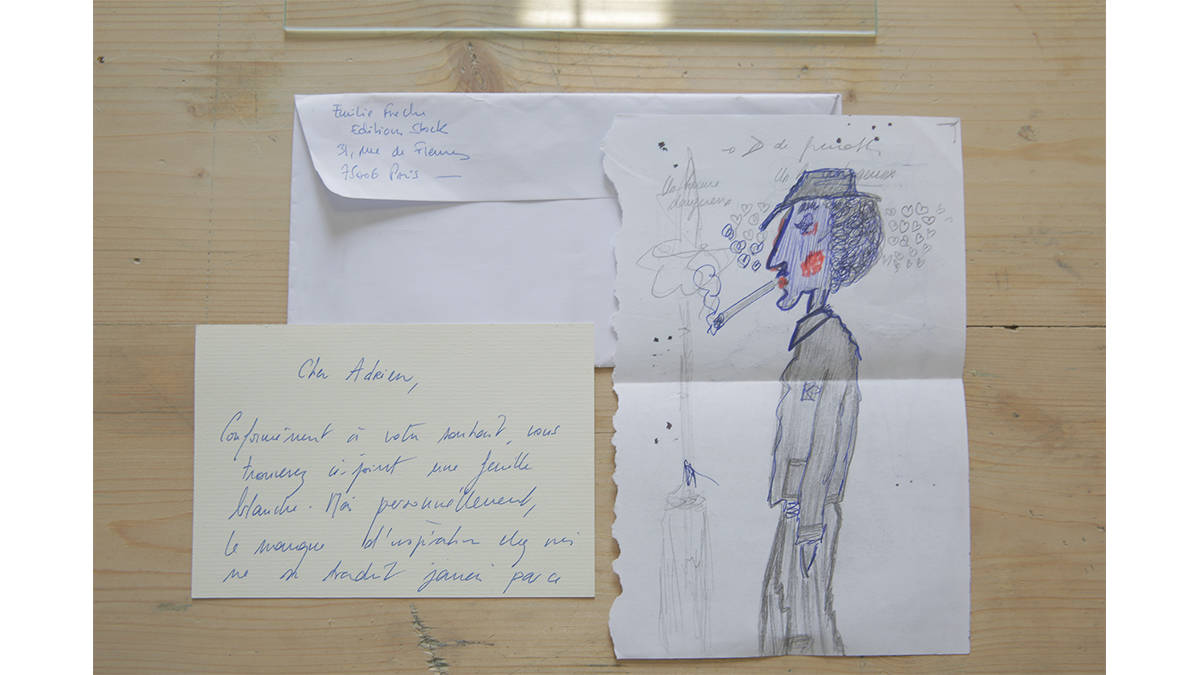 Emilie Freche
Editions Stock
31, rue de Fleurus
75006 Paris
Cher Adrien,
Conformément à votre souhait, vous
trouverez ci-joint une feuille
blanche. Moi personnellement,
le manque d'inspiration chez moi
ne se traduit jamais par ce
de
Un homme
dangereux
Un